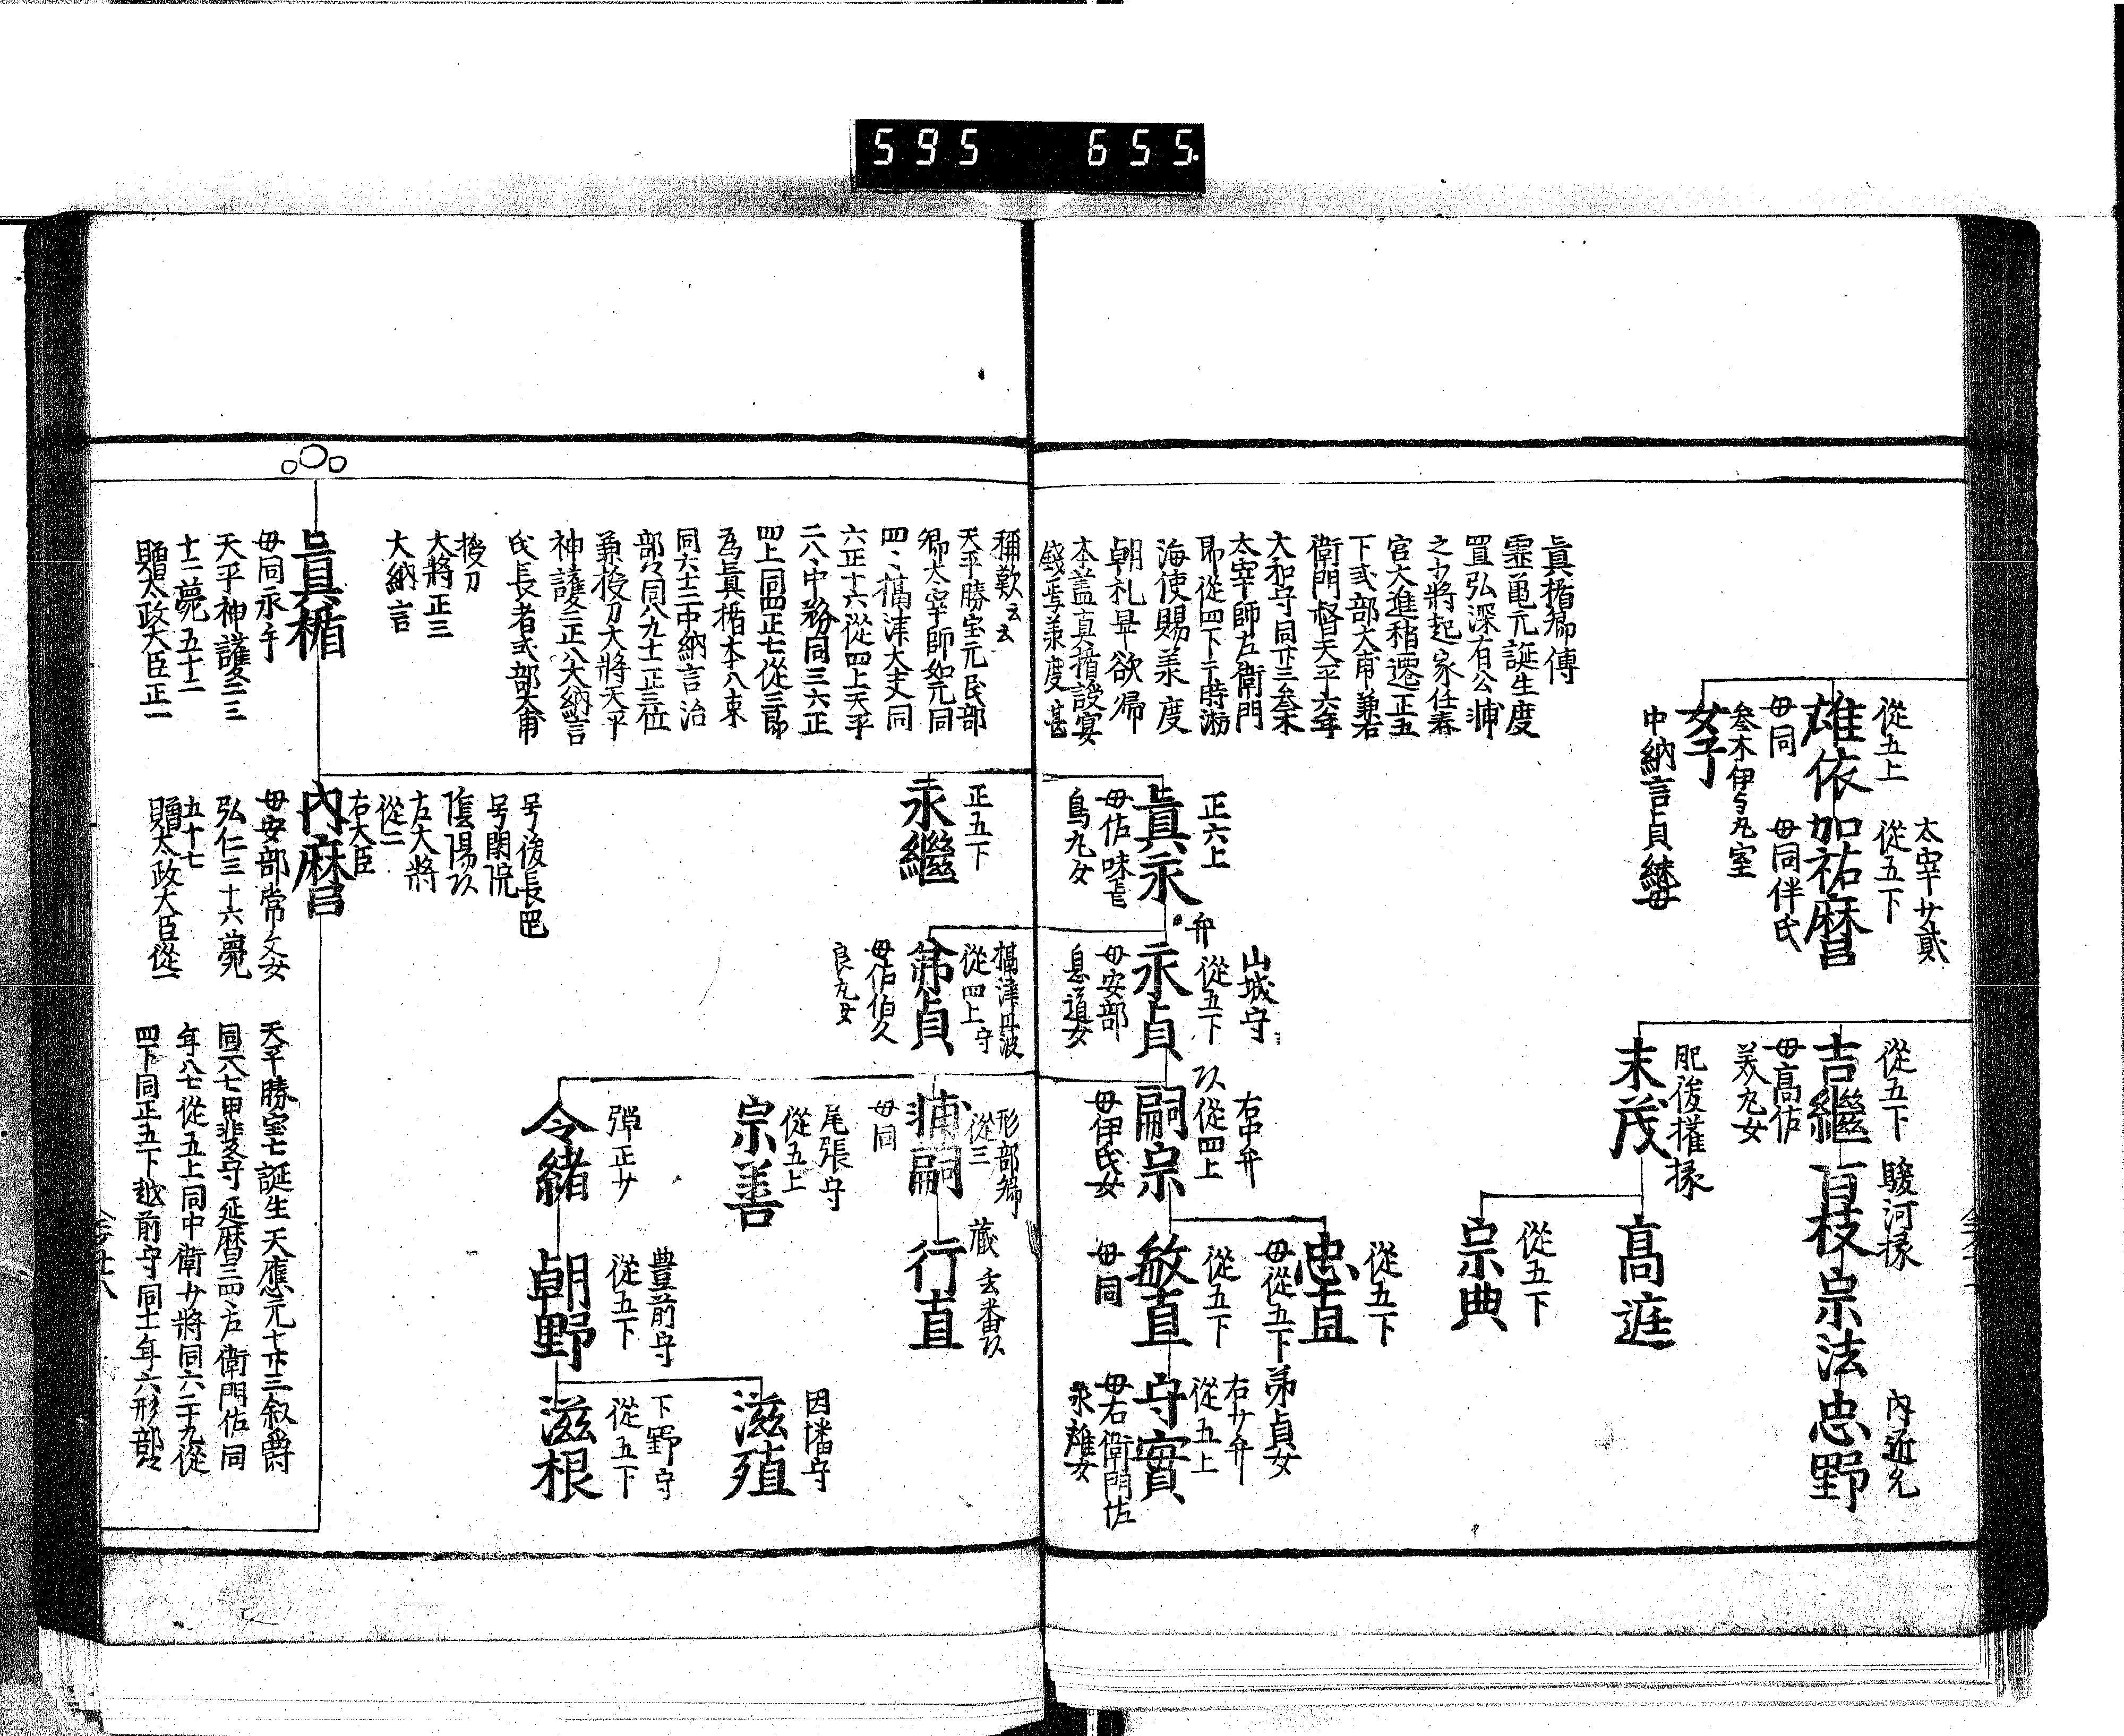 595 655
從五上
雄依
母同
女子
參木伊与丸室
中納言貞継母
太宰少貳
從五下
加祐麿
母同伴氏
從五下
吉繼
母高佐
美丸女
駿河掾
百枝
宗法
內近允
忠野
肥後權掾
末茂
高遮
從五下
宗典
眞楯卿傳
霊亀元誕生度
量弘深有公輔
之才將起家任春
官大進稍遷正五
下式部大甫兼右
衛門督天平六年
大和守同廿三參木
太宰師左衛門
即從四下于時渤
海使賜羕度
朝礼畢欲帰
本蓋真楯設宴
錢焉羕度甚
正六上
眞永
母佐味
鳥丸女
山城守
弁
從五下
永貞
母安部
息道女
右中弁
從四上
嗣宗
母伊氏女
從五下
忠直
母從五下弟貞女
從五下
敏直
母同
右少弁
從五上
守實
母右衛門佐
永雄女
稱歎云云
天平勝宝元民部
卿太宰師如元同
四々攝津大丈同
六正十六從四上天平
二八中務同三六正
四上同四正七從三即
為眞楯本八束
同六十二中納言治
部々同八九十一正三位
兼授刀大將天平
神護二正八大納言
氏長者式部大甫
授刀
大將正三
大納言
正五下
永繼
攝津丹波守
從四上
母佐伯久
良丸女
形部卿
從三
輔嗣
母同
蔵
玄番
行直
尾張守
從五上
宗善
彈正少
令緒
豊前守
從五下
朝野
因播守
滋殖
下野守
從五下
滋根
眞楯
母同永手
天平神護二三
十二薨五十二
贈太政大臣正一
号後長罡
号閑院
陰陽
左大將
從二
右大臣
內麿
母安部常丈女
弘仁三十六薨
五十七
贈太政大臣從一
天平勝宝七誕生天應元十廿三叙爵
同六七甲斐守延暦三四々左衛門佐同
年八七從五上同中衛少將同六二十九從
四下同正五下越前守同土年六形部々